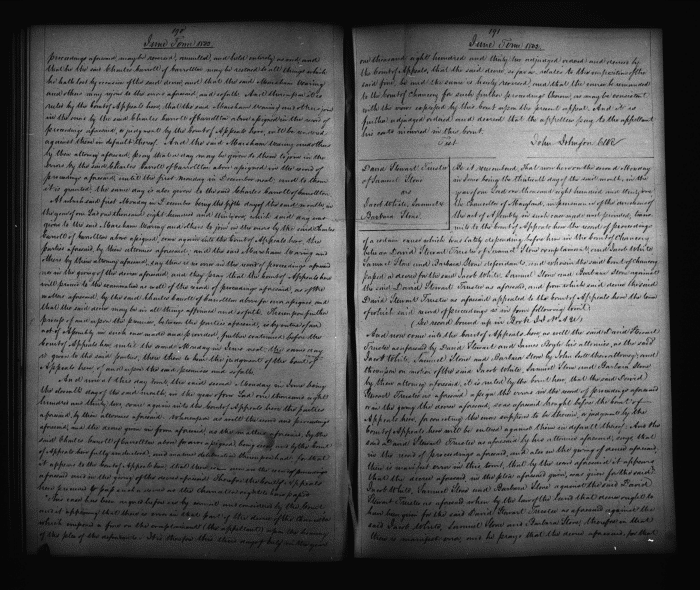 190
June Term 1832.
proceedings aforesaid may be revised, annulled, and held entirely as void, and
that he the said Charles Carroll of Carrollton may be restored to all things which
he hath lost by occasion of the said decree, and that the said Marsham Waring
and others may rejoin to the errors aforesaid, and so forth. And thereupon it is
ruled by the Court of Appeals here, that the said Marsham Waring and others rejoin
to the errors by the said Charles Carroll of Carrollton above assigned in the record of
proceedings aforesaid, or judgment by the Court of Appeals here, will be entered
against them in default thereof. And the said Marsham Waring and others
by their attorney aforesaid, pray that a day may be given to them to join in the
errors by the said Charles Carroll of Carrollton above assigned in the record of
proceedings aforesaid, until the first Monday in December next, and to them
it is granted; the same day is also given to the said Charles Carroll of Carrollton.
At which said first Monday in December being the fifth day of the said month in
the year of our Lord one thousand eight hundred and thirty one, which said day was
given to the said Marsham Waring and others to join in the errors by the said Charles
Carroll of Carrollton above assigned, come again into the Court of Appeals here, the
parties aforesaid, by their attornies aforesaid; and the said Marsham Waring and
others by their attorney aforesaid, say there is no error in the record of proceedings aforesaid
nor in the giving of the decree aforesaid, and they pray that the Court of Appeals here
will proceed to the examination as well of the record of proceedings aforesaid, as of the
matters aforesaid, by the said Charles Carroll of Carrollton above for error assigned and
that the said decree may be in all things affirmed and so forth. Thereupon further
process of and upon the premises, between the parties aforesaid, is by virtue of an
act of Assembly in such case made and provided, further continued before the
Court of Appeals here, until the second Monday in June next; the same day
is given to the said parties, there then to hear the judgment of the Court of
Appeals here, of and upon the said premises and so forth.
And now at this day, to wit, the said second Monday in June being
the eleventh day of the said month, in the year of our Lord one thousand eight
hundred and thirty two, come again into the Court of Appeals here the parties
aforesaid, by their attornies aforesaid. Whereupon as well the record and proceedings
aforesaid, and the decree given in form aforesaid, as the matters aforesaid, by the
said Charles Carroll of Carrollton above for error assigned, being seen, and by the Court
of Appeals here fully understood, and mature deliberation thereupon had, for that
it appears to the Court of Appeals here, that there is error in the record of proceedings
aforesaid and in the giving of the decree aforesaid. Therefore the Court of Appeals
here proceed to pass such decree as the Chancellor ought to have passed
This case has been argued before us by counsel and considered by the Court
and it appearing that there is error in that part of the decree of the Chancellor
which imposed a fine on the complainant (the appellant) upon the hearing
of the plea of the defendants. It is therefore this third day of July in the year
191
June Term 1832.
one thousand eight hundred and thirty two adjudged ordered and decreed by
the Court of Appeals, that the said decree, so far as relates to the imposition of the
said fine, be and the same is hereby reversed, and that the cause be remanded
to the Court of Chancery for such further proceedings therein, as may be consistent
with the views expressed by this Court upon the present appeal. And it is
further adjudged ordered and decreed that the appellees pay to the appellant
his costs incurred in this Court.
Test. John Johnson Clk
David Stewart Trustee
of Samuel Stone
vs
Jacob White, Samuel &
Barbara Stone
Be it remembered, That now here on the second Monday
in June being the eleventh day of the said month, in the
year of our Lord one thousand eight hundred and thirty two,
the Chancellor of Maryland, in pursuance of the directions of
the act of Assembly in such case made and provided, trans-
mits to the Court of Appeals here the record of proceedings
of a certain cause which was lately depending before him in the Court of Chancery
between David Stewart Trustee of Samuel Stone complainant, and Jacob White,
Samuel Stone and Barbara Stone, defendants, and wherein the said Court of Chancery
passed a decree for the said Jacob White, Samuel Stone and Barbara Stone against
the said David Stewart Trustee as aforesaid, and from which said decree the said
David Stewart Trustee as aforesaid appealed to the Court of Appeals here the tenor
of which said record of proceedings is in form following to wit:
And now come into the Court of Appeals here, as well the said David Stewart
Trustee as aforesaid by David Stewart and James Boyle his attornies, as the said
Jacob White, Samuel Stone and Barbara Stone by John Scott their attorney; and
thereupon on motion of the said Jacob White, Samuel Stone and Barbara Stone
by their attorney aforesaid, it is ruled by the Court here, that the said David
Stewart Trustee as aforesaid assign the errors in the record of proceedings aforesaid
or in the giving the decree aforesaid, and so forth brought before the Court of
Appeals here, for correcting the same supposed to be therein, or judgment by the
Court of Appeals here will be entered against him in default thereof. And the
said David Stewart Trustee as aforesaid by his attornies aforesaid, says that
in the record of proceedings aforesaid, and also in the giving of decree aforesaid,
there is manifest error in this, to wit, that by the record aforesaid it appears
that the decree aforesaid in the plea aforesaid given, was given for the said
Jacob White, Samuel Stone and Barbara Stone against the said David
Stewart Trustee as aforesaid, when by the law of the land that decree ought to
have been given for the said David Stewart Trustee as aforesaid against the
said Jacob White, Samuel Stone and Barbara Stone; therefore in that
there is manifest error, and he prays that the decree aforesaid, for that